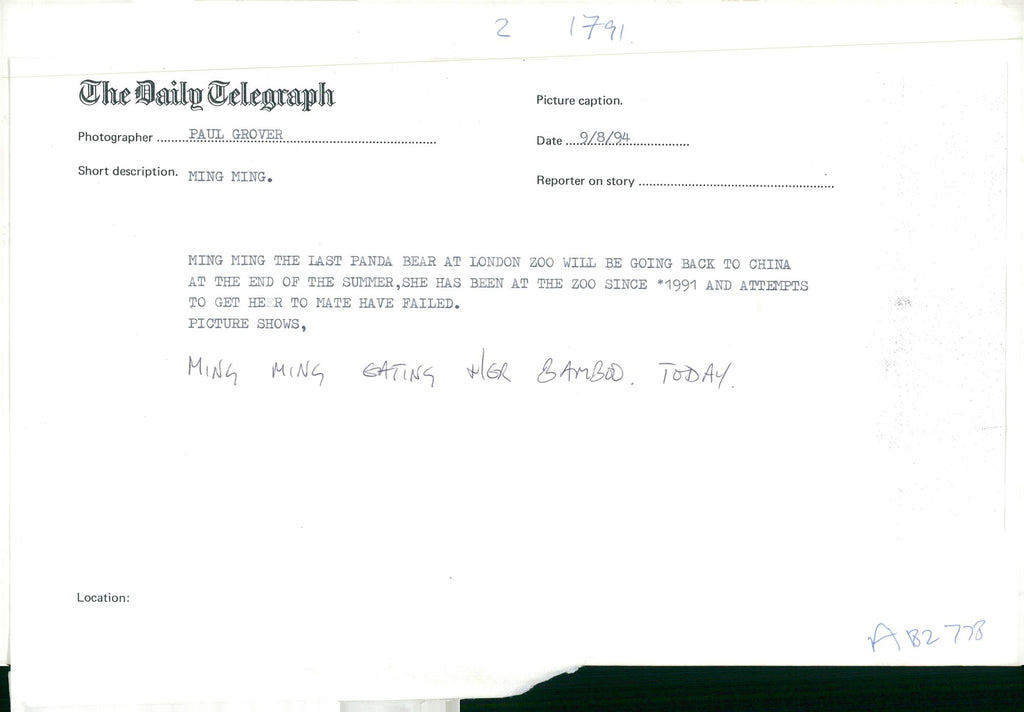 2 1791.
The Daily Telegraph
Picture caption.
Photographer ...... PAUL GROVER
Date ... 9/8/94
Short description. MING MING.
Reporter on story
MING MING THE LAST PANDA BEAR AT LONDON ZOO WILL BE GOING BACK TO CHINA
AT THE END OF THE SUMMER,SHE HAS BEEN AT THE ZOO SINCE *1991 AND ATTEMPTS
TO GET HEER TO MATE HAVE FAILED.
PICTURE SHOWS,
MING MING EATING HER BAMBOO. TODAY.
Location: